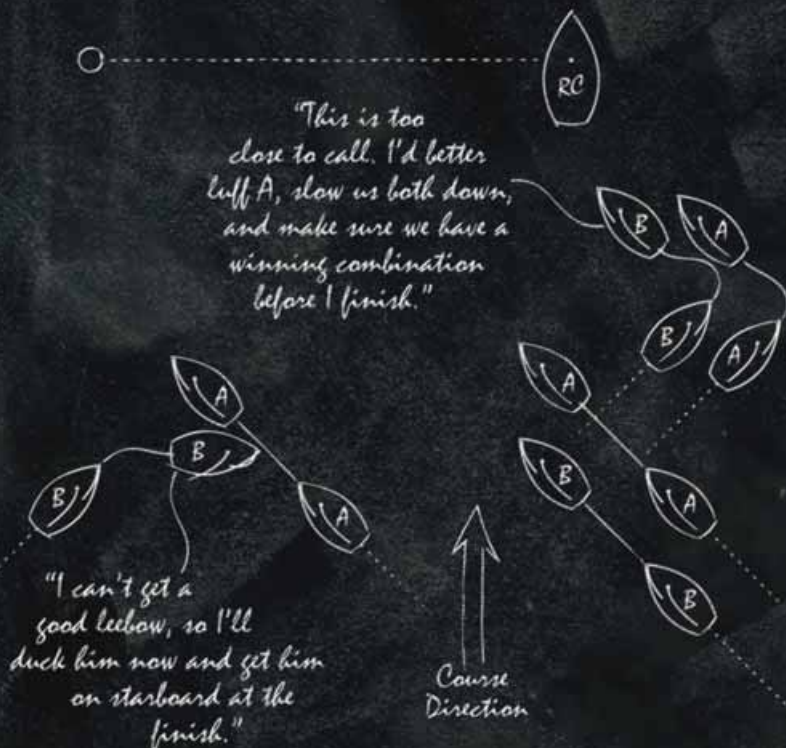 RC
"This is too
close to call. I'd better
luff A, slow us both down,
and make sure we have a
winning combination
before I finish."
B
A
B
A
A
B
A
B
A
B
B
A
"I can't get a
good leebow, so I'll
duck him now and get him
on starboard at the
finish."
Course
Direction